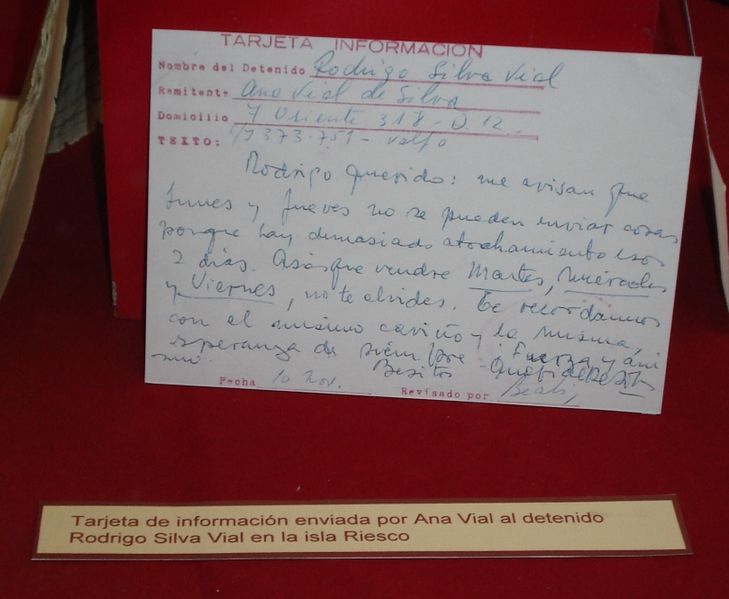 TARJETA INFORMACION
Nombre del Detenido Rodrigo Silva Vial
Remitente Ana Vial de Silva
Domicilio 7 Oriente 318 - D. 12.
TEXTO: 373.751 - Valpo
Rodrigo Querido: me avisan que
Lunes y Jueves no se pueden enviar cosas
porque hay demasiado atochamiento esos
2 días. Así es que vendre Martes, Miércoles
y Viernes, no te olvides. Te recordamos
con el mismo cariño y la misma,
esperanza de siempre. Fuerza y áni
mo. Besitos
Fecha 10 Nov. Revisado por
Tarjeta de información enviada por Ana Vial al detenido
Rodrigo Silva Vial en la isla Riesco